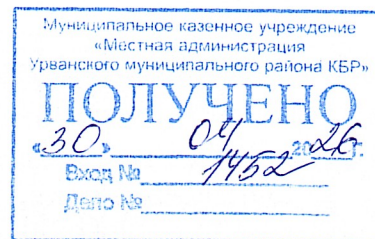 Муниципальное казенное учреждение
«Местная администрация
Урванского муниципального района КБР»
ПОЛУЧЕНО
«30» 04 2026г.
Вход № 1452
Дело №